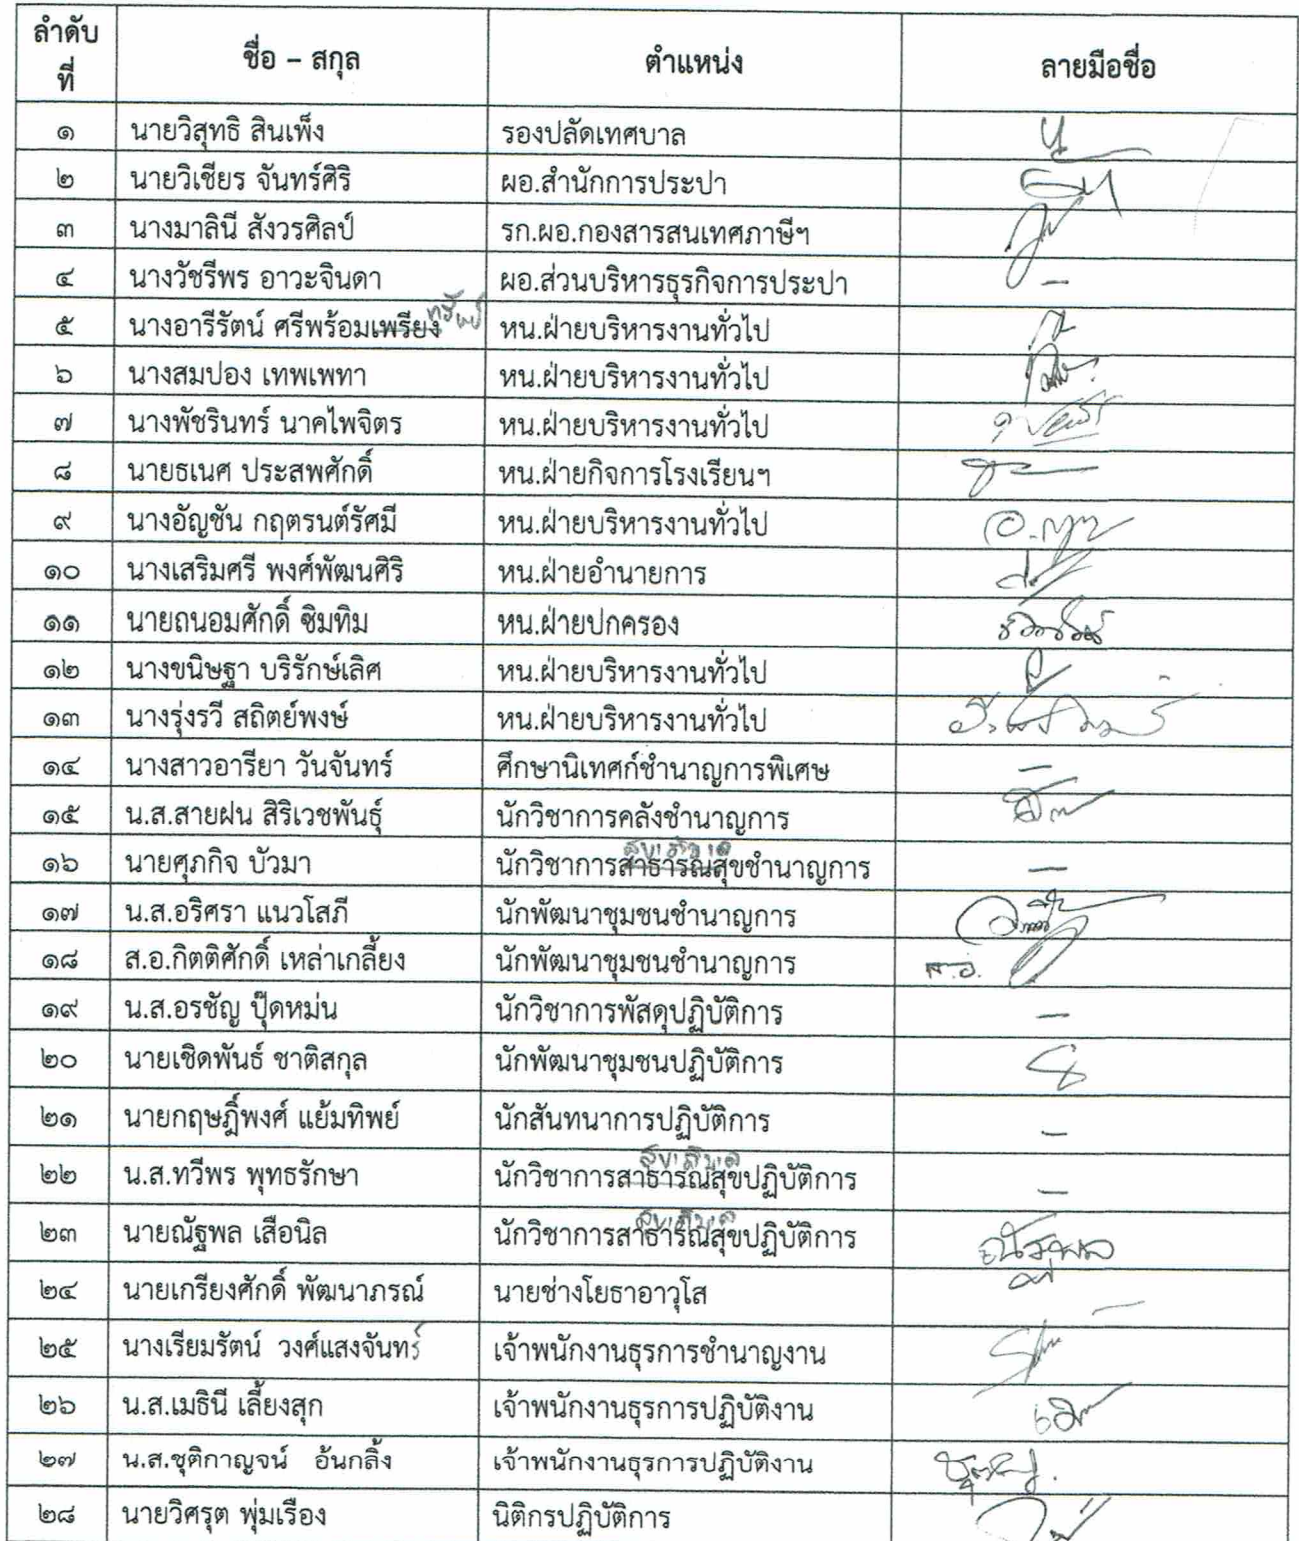 ลำดับที่ ชื่อ – สกุล ตำแหน่ง ลายมือชื่อ
๑ นายวิสุทธิ สินเพ็ง รองปลัดเทศบาล
๒ นายวิเชียร จันทร์ศิริ ผอ.สำนักการประปา
๓ นางมาลินี สังวรศิลป์ รก.ผอ.กองสารสนเทศภาษีฯ
๔ นางวัชรีพร อาวะจินดา ผอ.ส่วนบริหารธุรกิจการประปา –
๕ นางอารีรัตน์ ศรีพร้อมเพรียง ทรัพย์ หน.ฝ่ายบริหารงานทั่วไป
๖ นางสมปอง เทพเพทา หน.ฝ่ายบริหารงานทั่วไป
๗ นางพัชรินทร์ นาคไพจิตร หน.ฝ่ายบริหารงานทั่วไป
๘ นายธเนศ ประสพศักดิ์ หน.ฝ่ายกิจการโรงเรียนฯ
๙ นางอัญชัน กฤตรนต์รัศมี หน.ฝ่ายบริหารงานทั่วไป
๑๐ นางเสริมศรี พงศ์พัฒนศิริ หน.ฝ่ายอำนายการ
๑๑ นายถนอมศักดิ์ ซิมทิม หน.ฝ่ายปกครอง
๑๒ นางขนิษฐา บริรักษ์เลิศ หน.ฝ่ายบริหารงานทั่วไป
๑๓ นางรุ่งรวี สถิตย์พงษ์ หน.ฝ่ายบริหารงานทั่วไป
๑๔ นางสาวอารียา วันจันทร์ ศึกษานิเทศก์ชำนาญการพิเศษ –
๑๕ น.ส.สายฝน สิริเวชพันธุ์ นักวิชาการคลังชำนาญการ
๑๖ นายศุภกิจ บัวมา นักวิชาการสาธารณสุขชำนาญการ –
๑๗ น.ส.อริศรา แนวโสภี นักพัฒนาชุมชนชำนาญการ
๑๘ ส.อ.กิตติศักดิ์ เหล่าเกลี้ยง นักพัฒนาชุมชนชำนาญการ ส.อ.
๑๙ น.ส.อรชัญ ปุ๊ดหม่น นักวิชาการพัสดุปฏิบัติการ –
๒๐ นายเชิดพันธ์ ชาติสกุล นักพัฒนาชุมชนปฏิบัติการ
๒๑ นายกฤษฎิ์พงศ์ แย้มทิพย์ นักสันทนาการปฏิบัติการ –
๒๒ น.ส.ทวีพร พุทธรักษา นักวิชาการสาธารณสุขปฏิบัติการ –
๒๓ นายณัฐพล เสือนิล นักวิชาการสาธารณสุขปฏิบัติการ ณัฐพล
๒๔ นายเกรียงศักดิ์ พัฒนาภรณ์ นายช่างโยธาอาวุโส
๒๕ นางเรียมรัตน์ วงศ์แสงจันทร์ เจ้าพนักงานธุรการชำนาญงาน
๒๖ น.ส.เมธินี เลี้ยงสุก เจ้าพนักงานธุรการปฏิบัติงาน
๒๗ น.ส.ชุติกาญจน์ อ้นกลิ้ง เจ้าพนักงานธุรการปฏิบัติงาน
๒๘ นายวิศรุต พุ่มเรือง นิติกรปฏิบัติการ